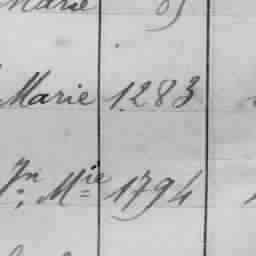 Marie
Marie 1283
Jn Mie 1794